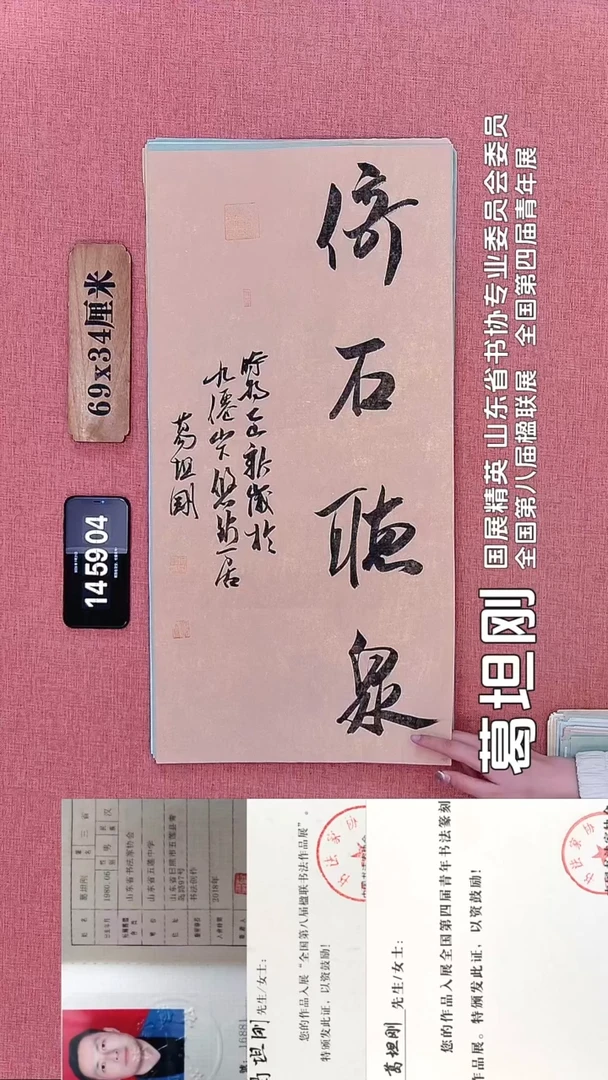 倚石聽泉
九僊山
悠然居
葛坦剛
69x34厘米
14 59 04
葛坦刚
国展精英 山东省书协专业委员会委员
全国第八届楹联展 全国第四届青年展
姓名
葛坦刚
1980.06
汉
山东省书法家协会
山东省五莲中学
书法创作
2018年
16881
葛坦刚 先生/女士:
您的作品入展“全国第八届楹联书法作品展”。
特颁发此证，以资鼓励!
葛坦刚 先生/女士:
您的作品入展全国第四届青年书法篆刻
作品展。特颁发此证，以资鼓励!